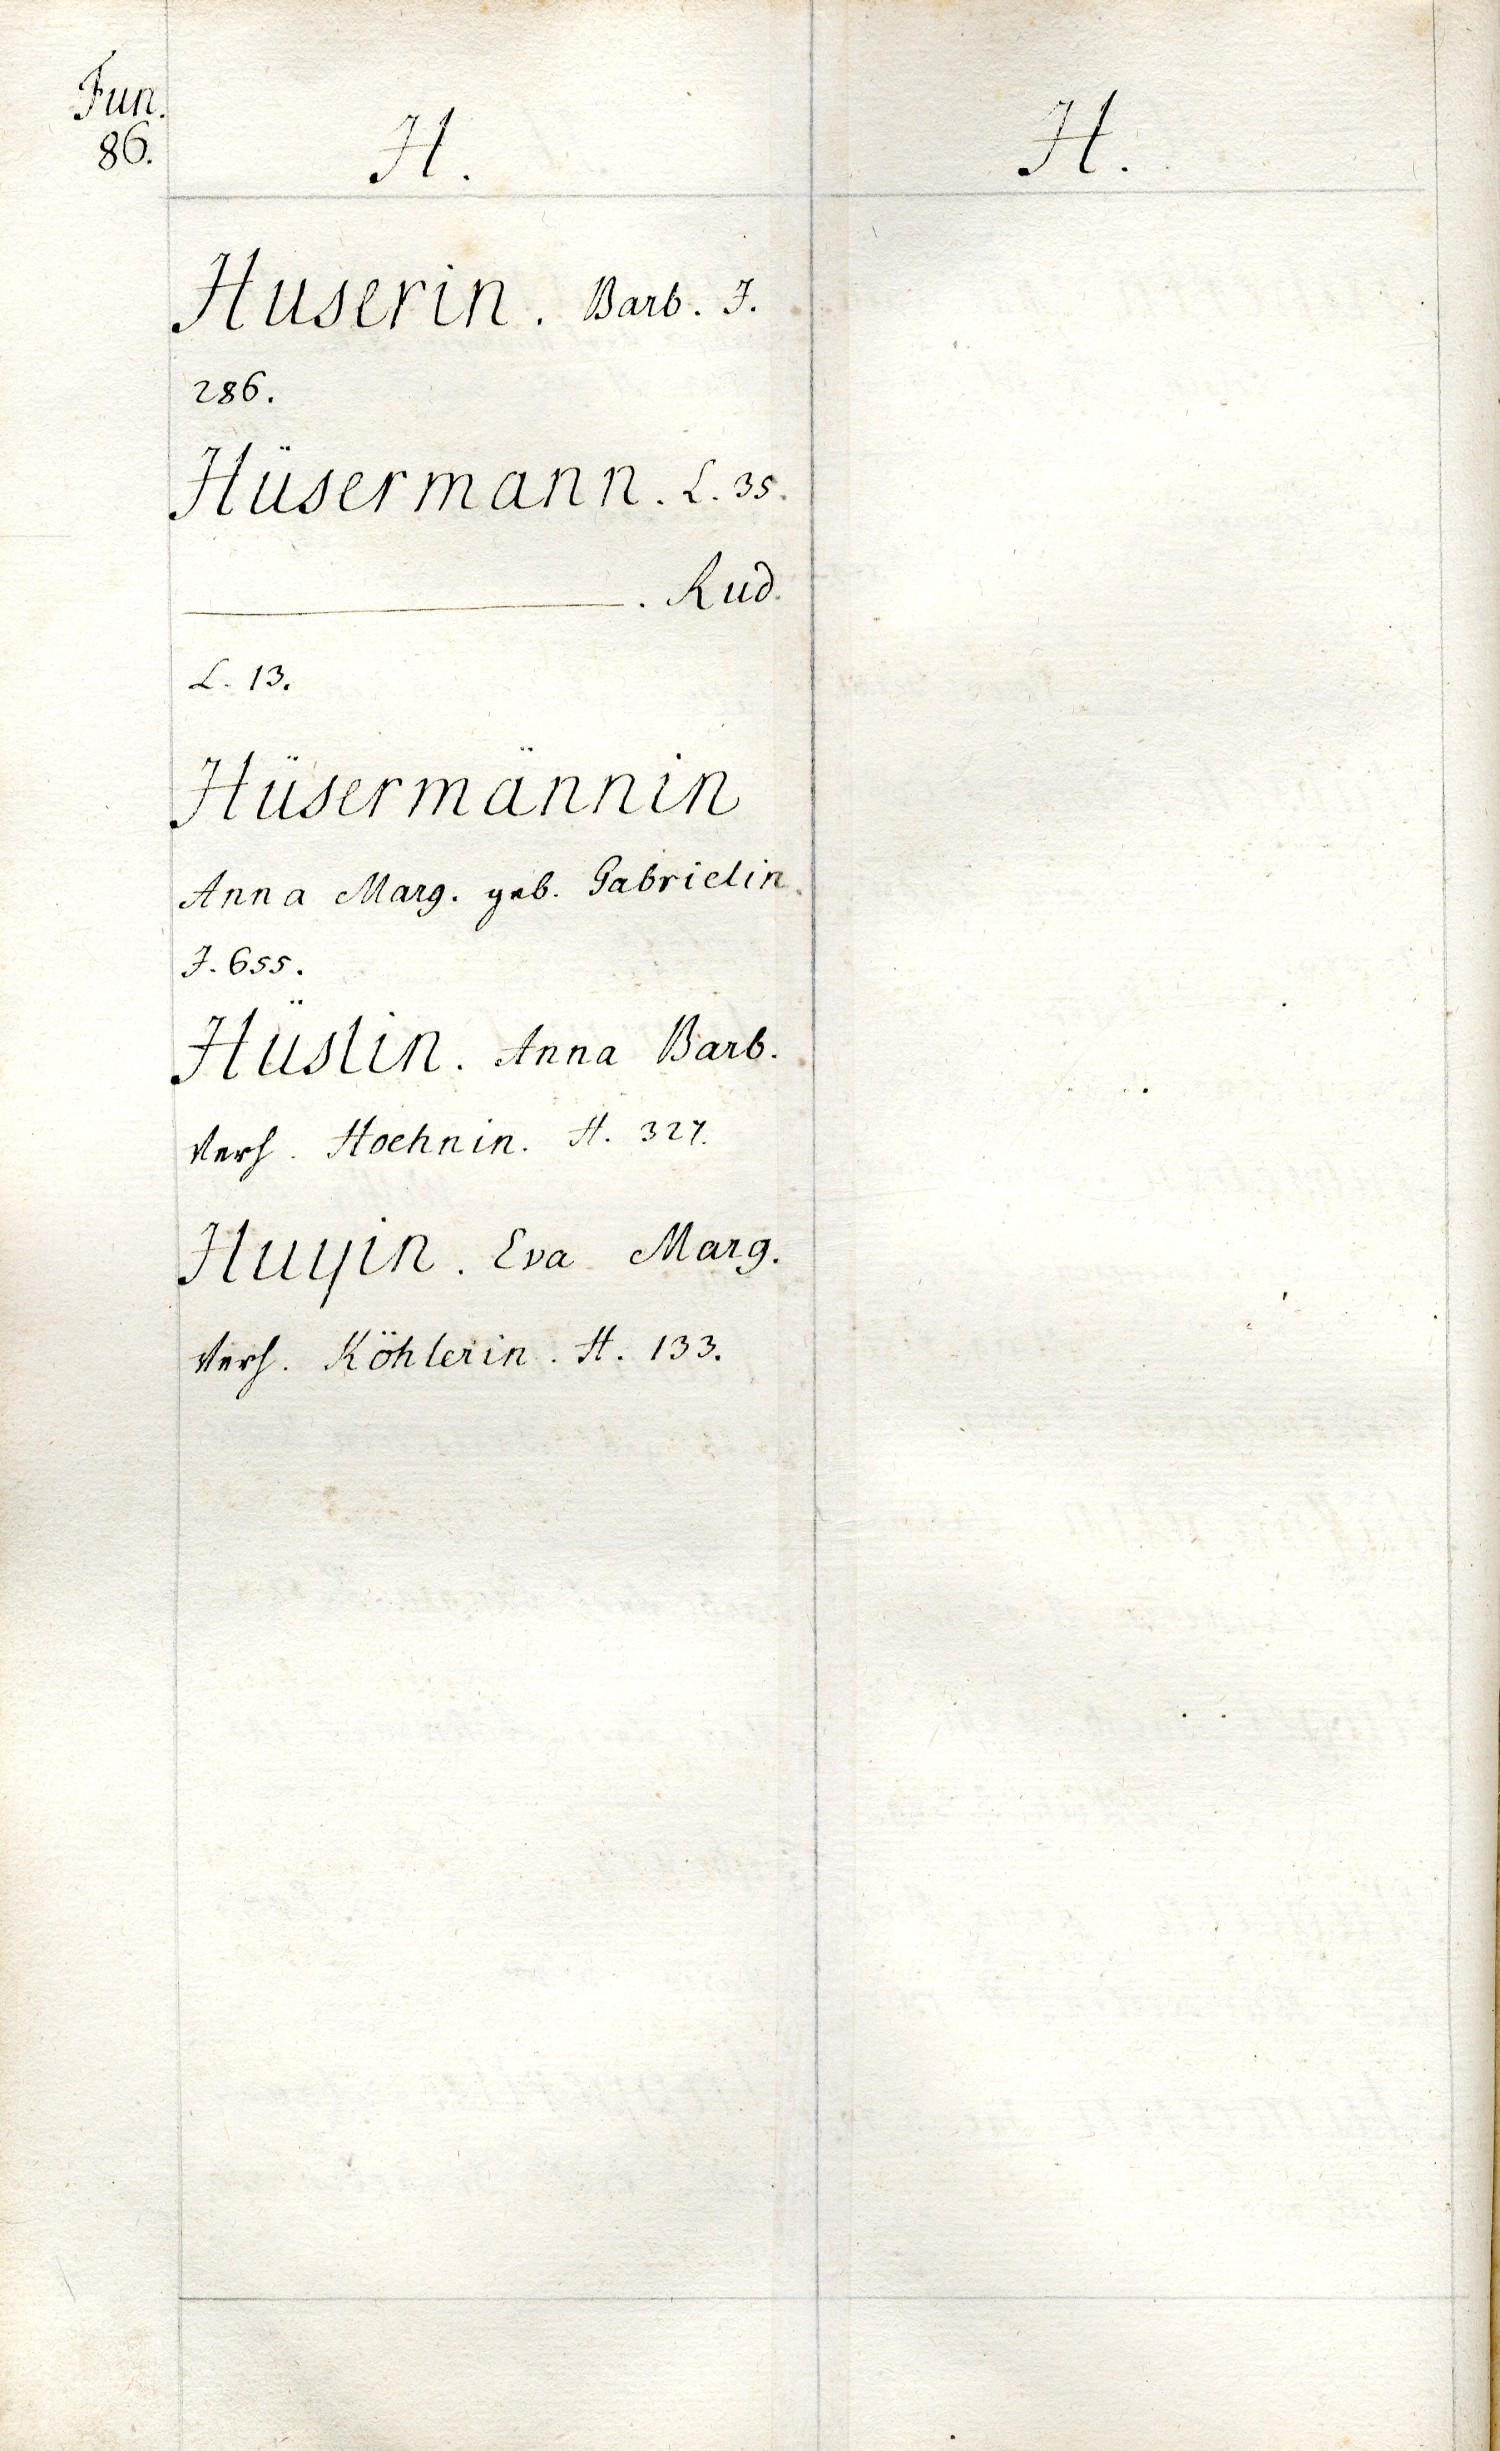 Fun.
86.
H.
H.
Huserin. Barb. J.
286.
Hüsermann. L. 35.
———. Rud.
L. 13.
Hüsermännin
Anna Marg. geb. Gabrielin.
J. 655.
Hüslin. Anna Barb.
verh. Hoehnin. H. 327.
Huyin. Eva Marg.
verh. Köhlerin. H. 133.